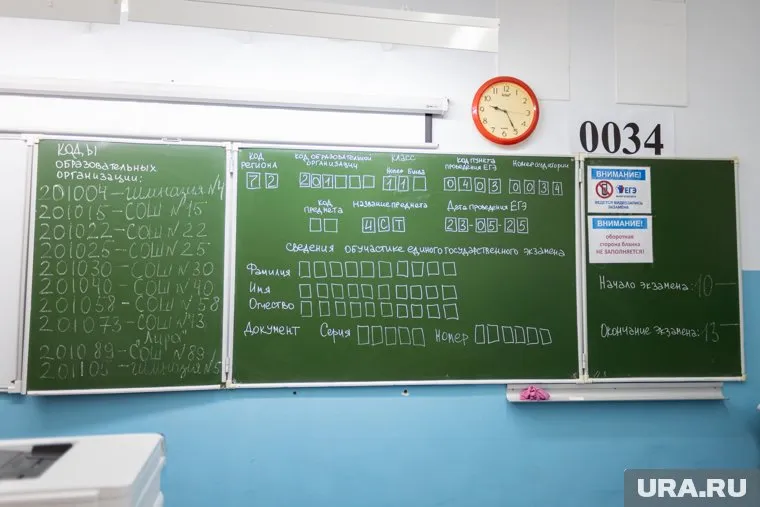 КОДЫ
образовательных
организации:
201004 - гимназия №4
201015 - СОШ №15
201022 - СОШ №22
201025 - СОШ №25
201030 - СОШ №30
201040 - СОШ №40
201058 - СОШ №58
201073 - СОШ №73
Лира
201089 - СОШ №89
гимназия №5
КОД РЕГИОНА
72
КОД ОБРАЗОВАТЕЛЬНОЙ ОРГАНИЗАЦИИ
201
КЛАСС
Номер Буква
11
КОД ПУНКТА ПРОВЕДЕНИЯ ЕГЭ
0403
НОМЕР АУДИТОРИИ
0034
КОД ПРЕДМЕТА
НАЗВАНИЕ ПРЕДМЕТА
ИСТ
ДАТА ПРОВЕДЕНИЯ ЕГЭ
23-05-25
СВЕДЕНИЯ ОБ УЧАСТИКЕ ЕДИНОГО ГОСУДАРСТВЕННОГО ЭКЗАМЕНА
Фамилия
Имя
Отчество
Документ Серия Номер
0034
ВНИМАНИЕ!
ЕГЭ
ВЕДЕТСЯ ВИДЕОЗАПИСЬ
ЭКЗАМЕНА
ВНИМАНИЕ!
оборотная
сторона бланка
НЕ ЗАПОЛНЯЕТСЯ!
Начало экзамена: 10
Окончание экзамена: 13
URA.RU